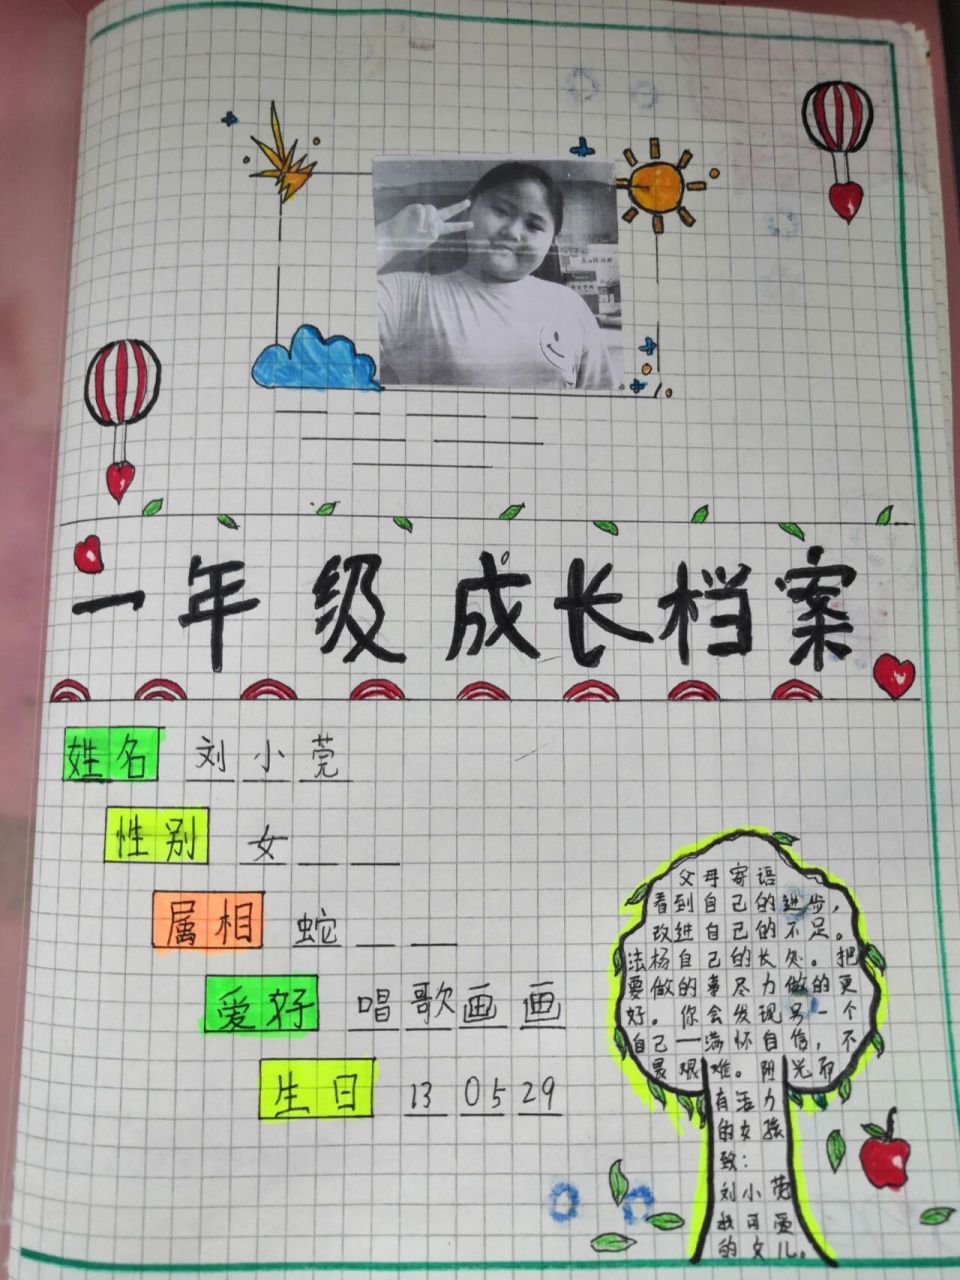 一年级成长档案
姓名 刘小莞
性别 女
属相 蛇
爱好 唱歌画画
生日 13 05 29
父母寄语
看到自己的进步，
改进自己的不足。
法杨自己的长处。把
要做的事尽力做的更
好。你会发现另一个
自己一满怀自信，不
艰难。阳光而
有活力
的女孩
致：
刘小莞
我可爱
的女儿。